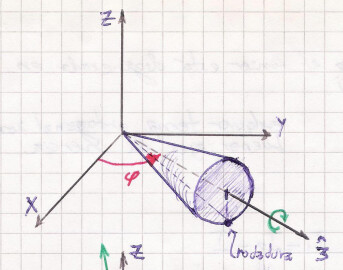 Z
Y
X
φ
rodadura
ẑ
Z